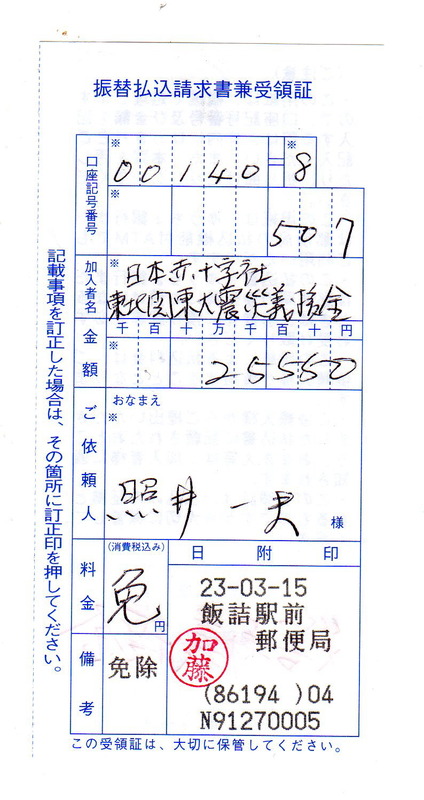 振替払込請求書兼受領証
口座記号番号
※
00140
※
8
※
507
加入者名
※
日本赤十字社
東北関東大震災義捐金
金額
千百十万千百十円
※
25550
ご依頼人
おなまえ
※
照井 一夫
様
料金
(消費税込み)
免
円
備考
免除
日附印
23-03-15
飯詰駅前
郵便局
加藤
(86194 )04
N91270005
記載事項を訂正した場合は、その箇所に訂正印を押してください。
この受領証は、大切に保管してください。